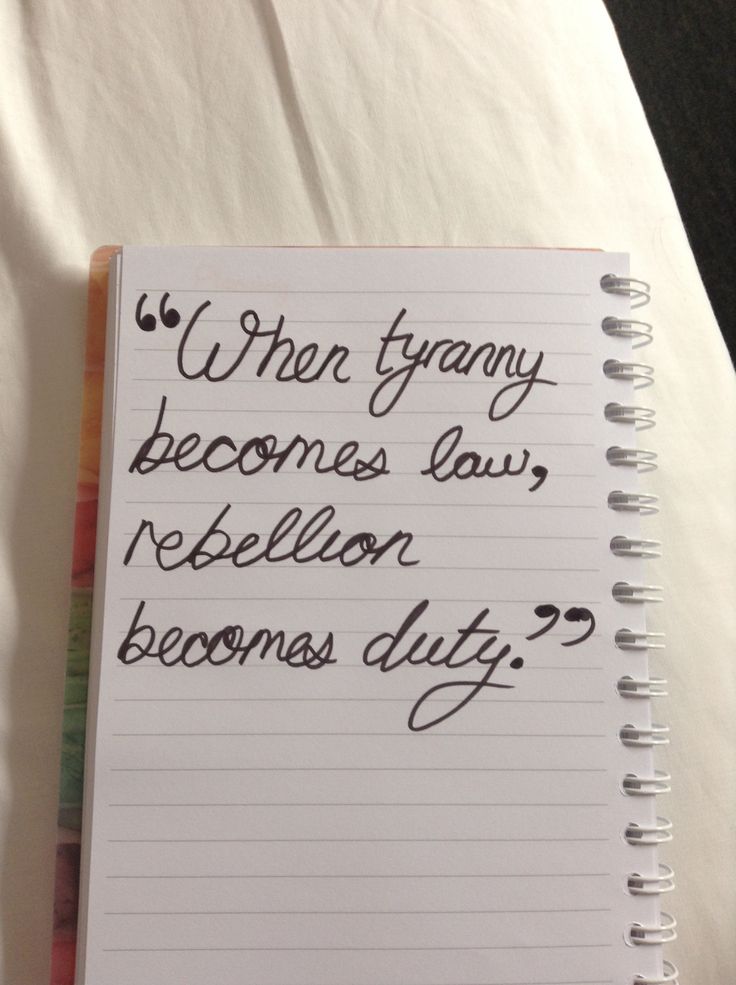 “When tyranny
becomes law,
rebellion
becomes duty.”